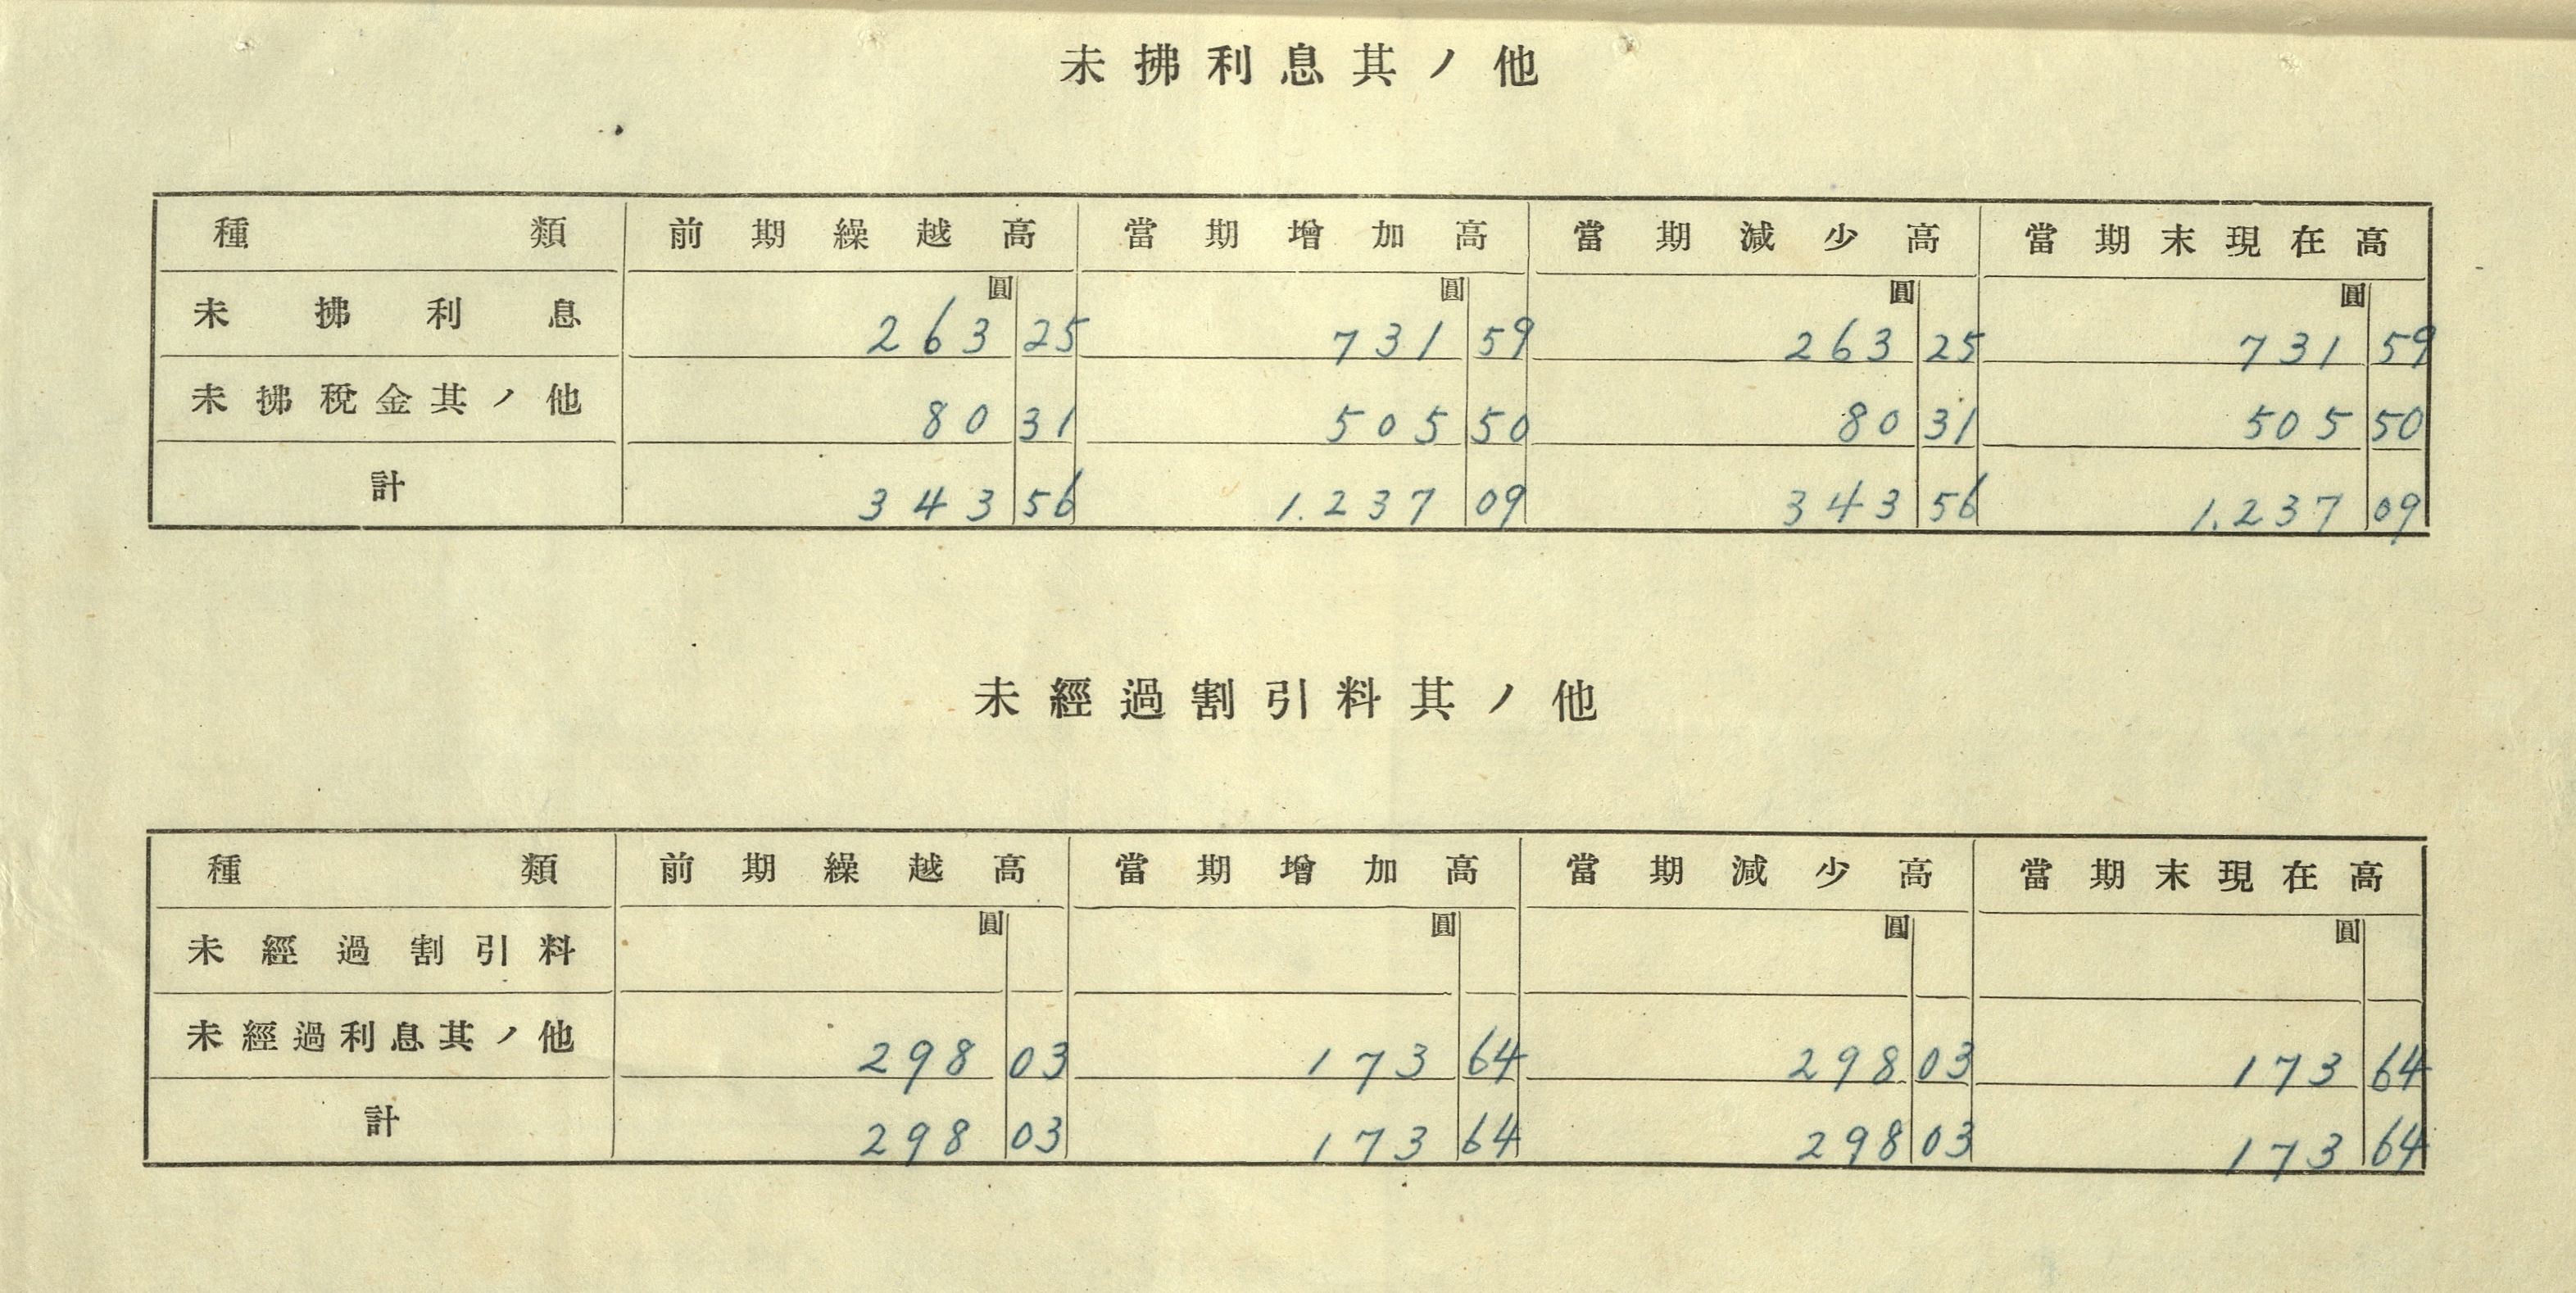 未拂利息其ノ他
種類 前期繰越高 當期增加高 當期減少高 當期末現在高
圓 圓 圓 圓
未拂利息 263 25 731 59 263 25 731 59
未拂稅金其ノ他 80 31 505 50 80 31 505 50
計 343 56 1.237 09 343 56 1.237 09
未經過割引料其ノ他
種類 前期繰越高 當期增加高 當期減少高 當期末現在高
未經過割引料 圓 圓 圓 圓
未經過利息其ノ他 298 03 173 64 298 03 173 64
計 298 03 173 64 298 03 173 64